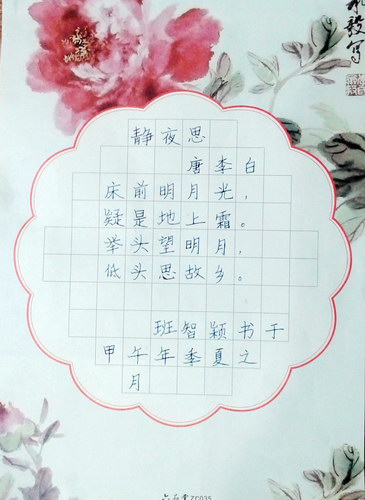 静夜思
唐李白
床前明月光，
疑是地上霜。
举头望明月，
低头思故乡。
班智颖书于
甲午年季夏之
月
ZC035